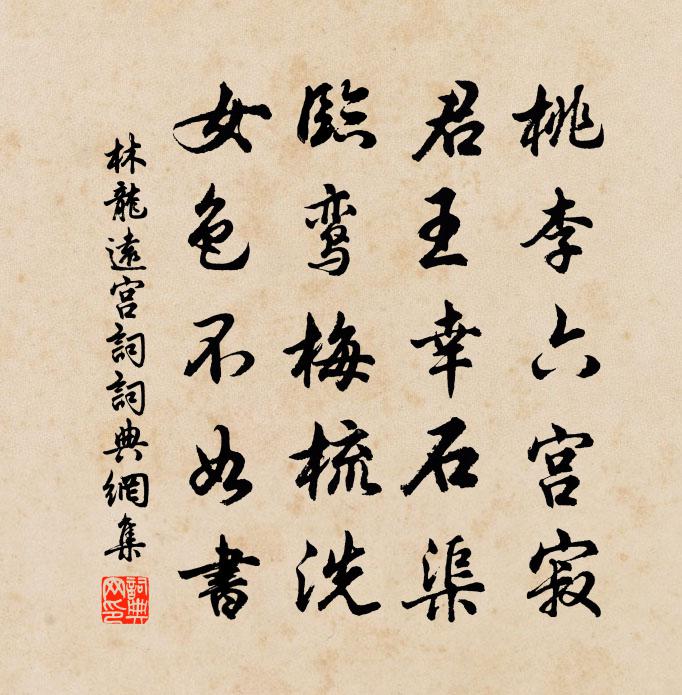 桃李六宫寂
君王幸石渠
臨鸾梅梳洗
女色不如書
林龍遠宫詞詞典網集
詞典網印